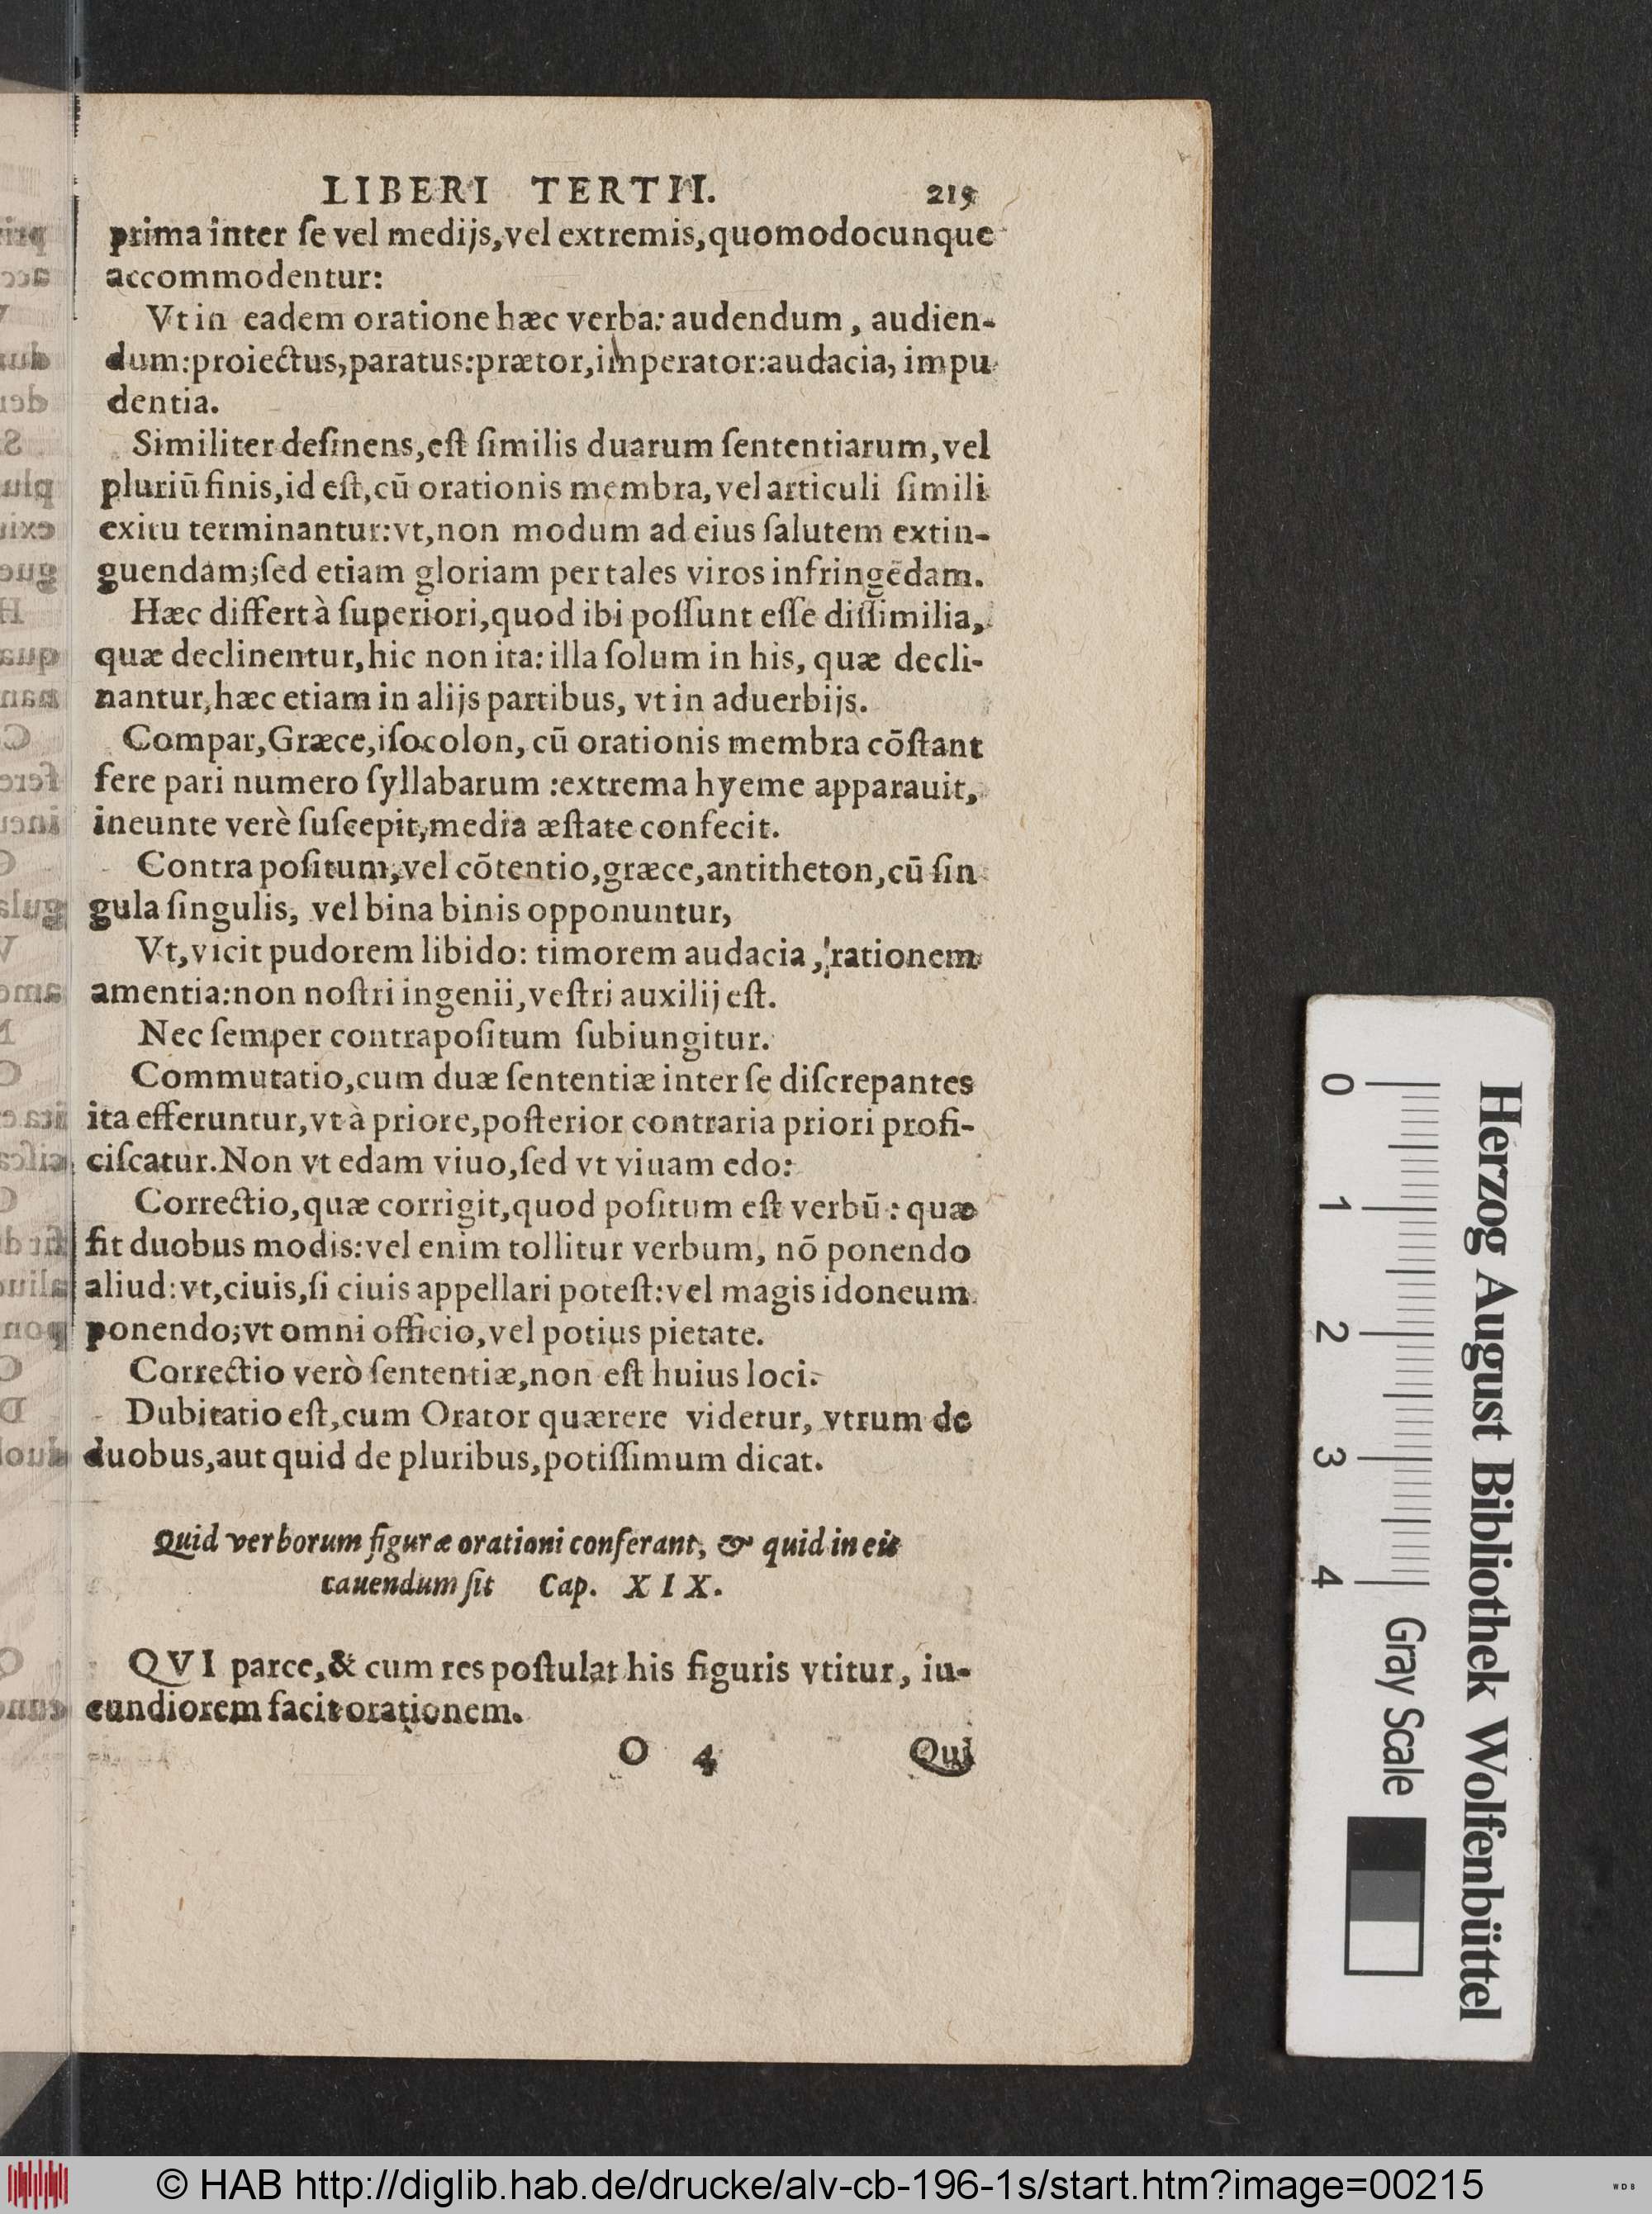 LIBERI TERTII. 215
prima inter ſe vel medijs, vel extremis, quomodocunque
accommodentur:
Vt in eadem oratione hæc verba: audendum, audien-
dum: proiectus, paratus: prætor, imperator: audacia, impu
dentia.
Similiter deſinens, eſt ſimilis duarum ſententiarum, vel
pluriū finis, id eſt, cū orationis membra, vel articuli ſimili
exitu terminantur: vt, non modum ad eius ſalutem extin-
guendam; ſed etiam gloriam per tales viros infringēdam.
Hæc differt à ſuperiori, quod ibi poſſunt eſſe diſſimilia,
quæ declinentur, hic non ita: illa ſolum in his, quæ decli-
nantur, hæc etiam in alijs partibus, vt in aduerbijs.
Compar, Græce, iſocolon, cū orationis membra cōſtant
fere pari numero ſyllabarum: extrema hyeme apparauit,
ineunte verè ſuſcepit, media æſtate confecit.
Contra poſitum, vel cōtentio, græce, antitheton, cū ſin
gula ſingulis, vel bina binis opponuntur,
Vt, vicit pudorem libido: timorem audacia, rationem
amentia: non noſtri ingenii, veſtri auxilij eſt.
Nec ſemper contrapoſitum ſubiungitur.
Commutatio, cum duæ ſententiæ inter ſe diſcrepantes
ita efferuntur, vt à priore, poſterior contraria priori profi-
ciſcatur. Non vt edam viuo, ſed vt viuam edo:
Correctio, quæ corrigit, quod poſitum eſt verbū: quæ
fit duobus modis: vel enim tollitur verbum, nō ponendo
aliud: vt, ciuis, ſi ciuis appellari poteſt: vel magis idoneum
ponendo; vt omni officio, vel potius pietate.
Correctio verò ſententiæ, non eſt huius loci.
Dubitatio eſt, cum Orator quærere videtur, vtrum de
duobus, aut quid de pluribus, potiſſimum dicat.
Quid verborum figuræ orationi conferant, & quid in eis
cauendum ſit Cap. XIX.
QVI parce, & cum res poſtulat his figuris vtitur, iu-
cundiorem facit orationem.
O 4 Qui
Herzog August Bibliothek Wolfenbüttel
0 1 2 3 4 Gray Scale
© HAB http://diglib.hab.de/drucke/alv-cb-196-1s/start.htm?image=00215
WDB